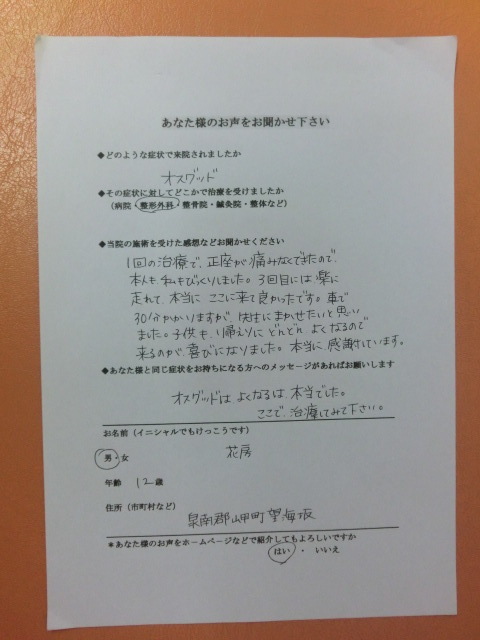 あなた様のお声をお聞かせ下さい
◆どのような症状で来院されましたか
オスグッド
◆その症状に対してどこかで治療を受けましたか
(病院・整形外科・整骨院・鍼灸院・整体など)
◆当院の施術を受けた感想などお聞かせください
1回の治療で、正座が痛みなくできたので、
本人も私もびっくりしました。3回目には、楽に
走れて、本当に ここに来て良かったです。車で
30分かかりますが、先生にまかせたいと思い
ました。子供も、帰えりに どんどん よくなるので
来るのが、喜びになりました。本当に、感謝しています。
◆あなた様と同じ症状をお持ちになる方へのメッセージがあればお願いします
オスグッドは よくなるは、本当でした。
ここで、治療してみて下さい。
お名前(イニシャルでもけっこうです)
男・女
花房
年齢 12歳
住所(市町村など)
泉南郡岬町望海坂
*あなた様のお声をホームページなどで紹介してもよろしいですか
はい ・ いいえ